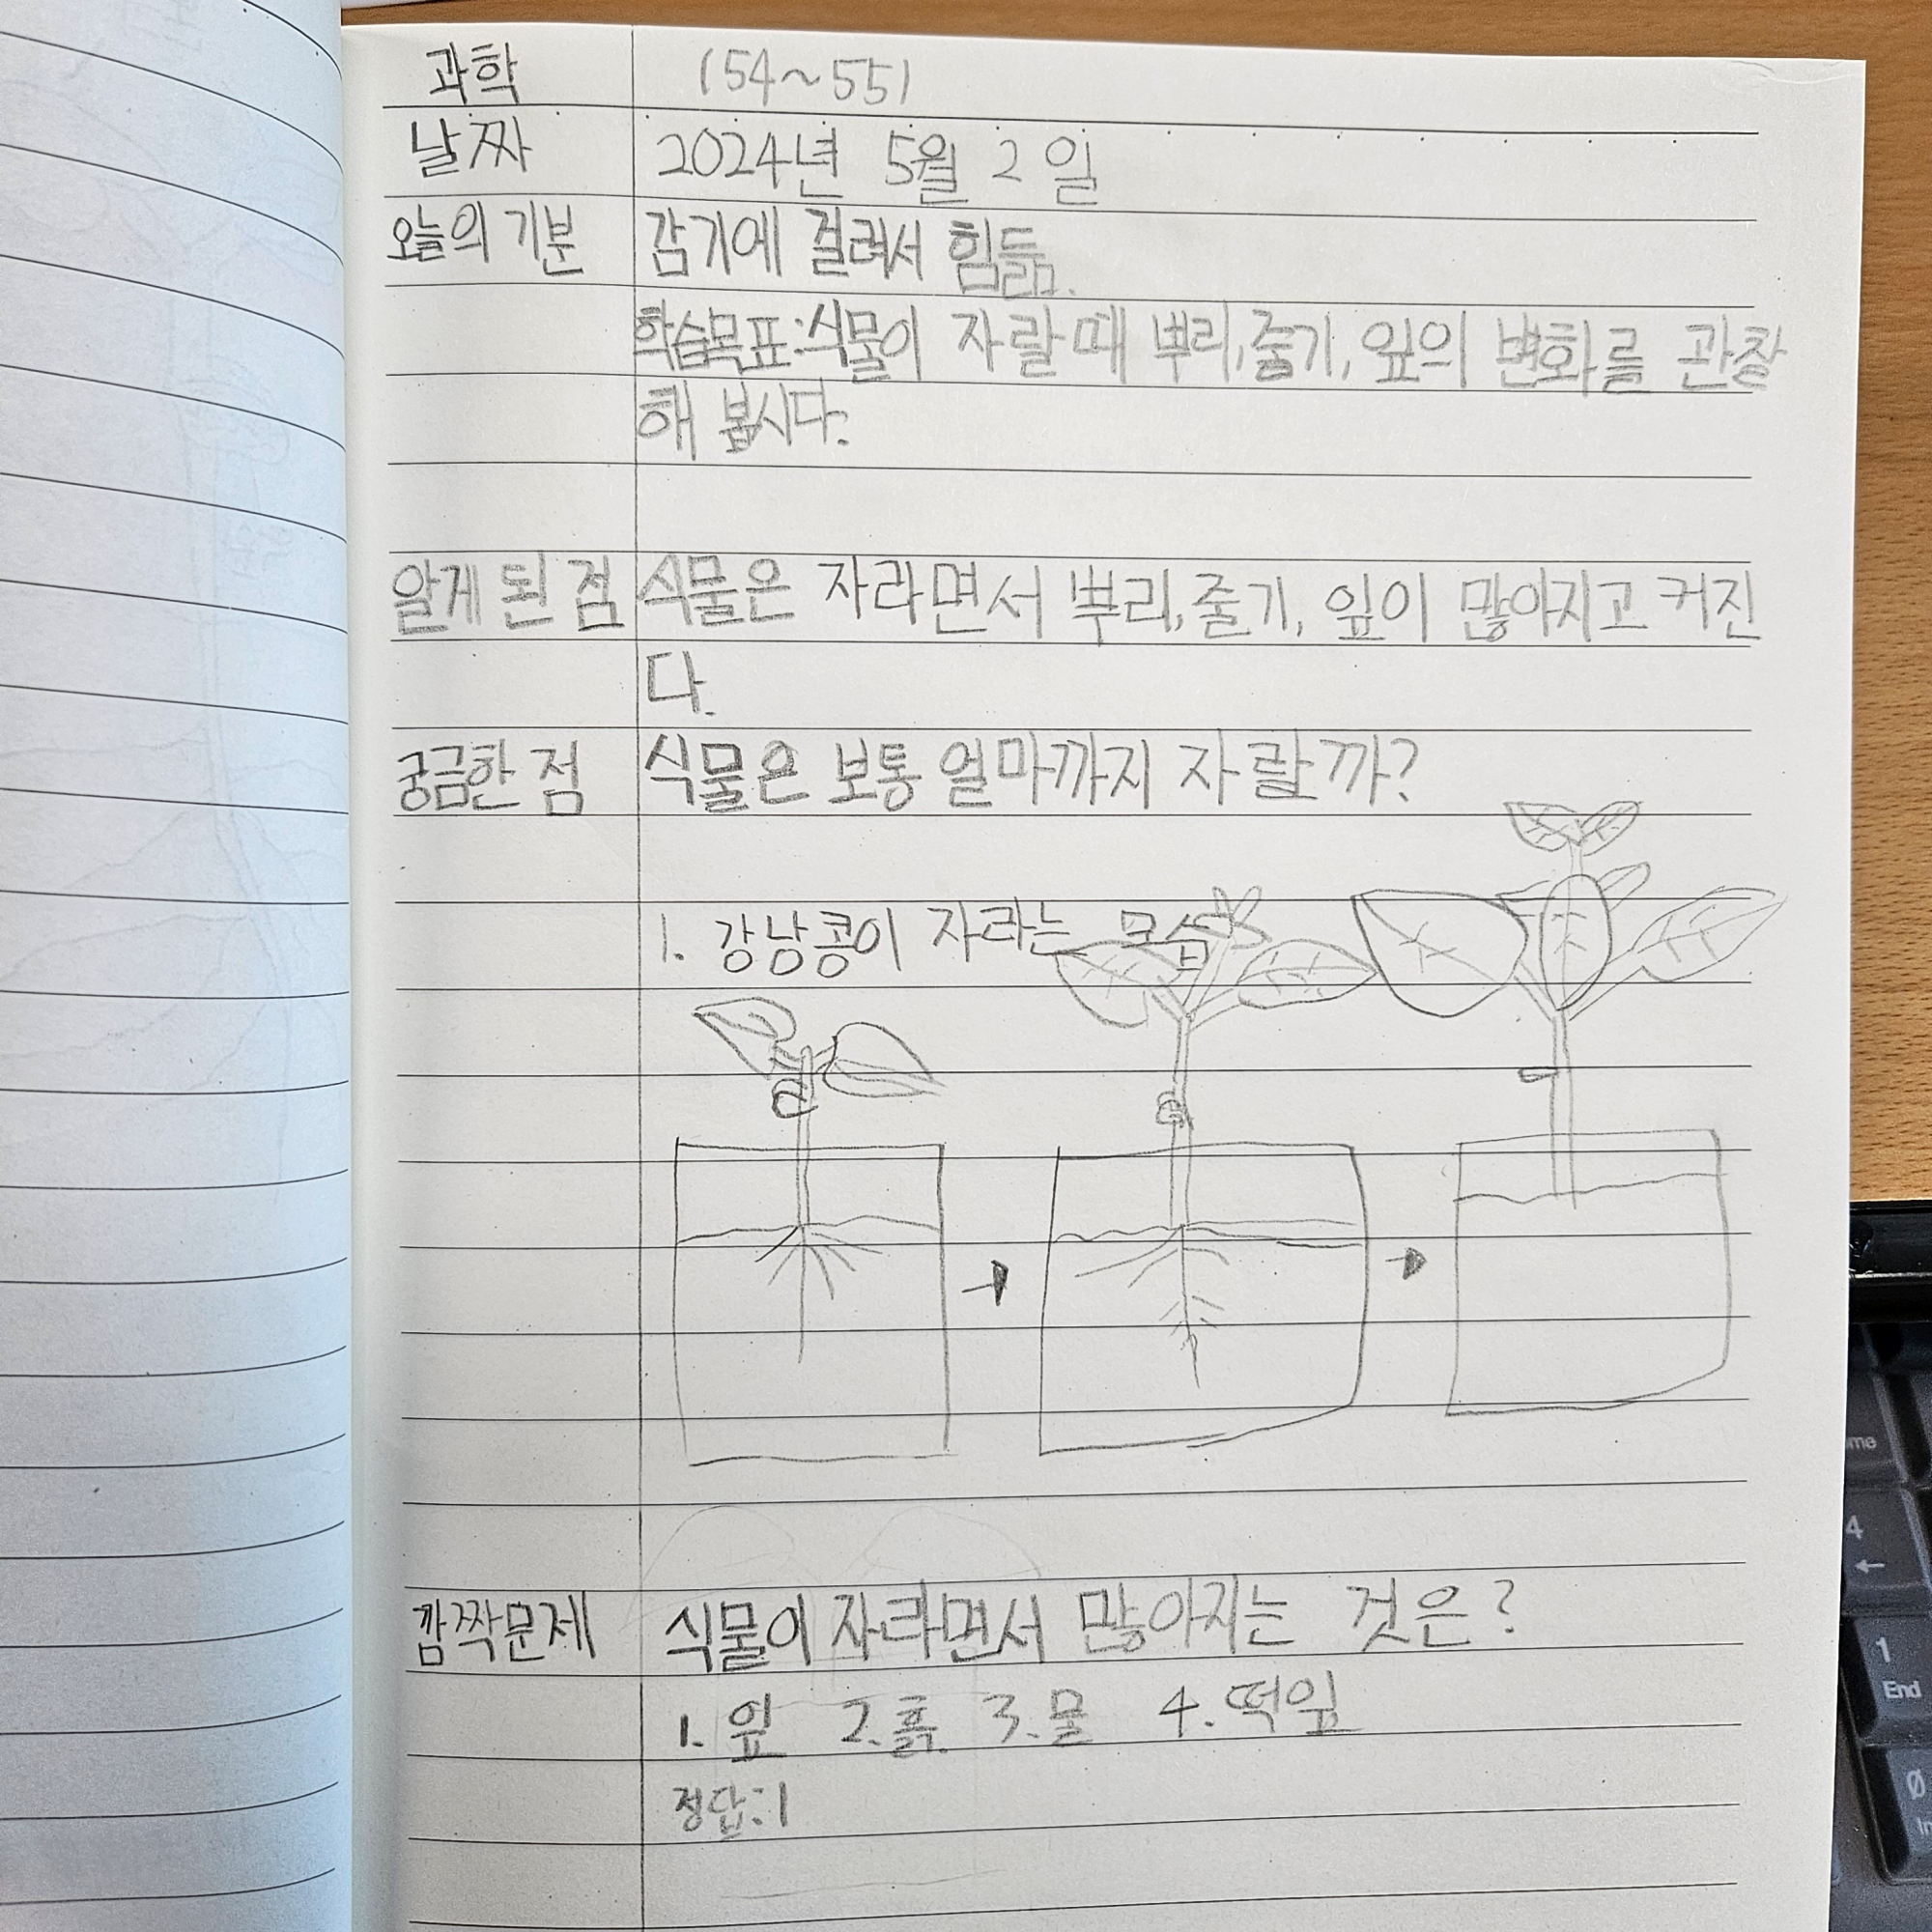 과학 (54~55)
날짜 2024년 5월 2일
오늘의 기분 감기에 걸려서 힘듦.
학습목표:식물이 자랄 때 뿌리,줄기, 잎의 변화를 관찰
해 봅시다.
알게 된 점 식물은 자라면서 뿌리,줄기, 잎이 많아지고 커진
다.
궁금한 점 식물은 보통 얼마까지 자랄까?
1. 강낭콩이 자라는 모습
깜짝문제 식물이 자라면서 많아지는 것은?
1. 잎 2.흙 3.물 4.떡잎
정답:1
ome
4
←
1
End
Ø
In